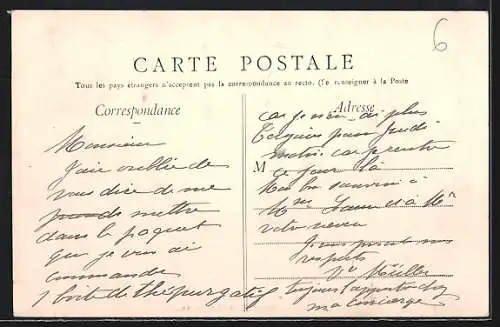 6
CARTE POSTALE
Tous les pays étrangers n'acceptent pas la correspondance au recto. (Se renseigner à la Poste
Correspondance
Monsieur
J'aie oublié de
vous dire de me
mettre
dans le paquet
que je vous ai
commander
1 boite de thé purgatif
Adresse
car je n'en ai plus
pour jeudi
matin car je rentre
M ce jour là
Mon bon souvenir à
Mme et à Mr
votre neveu
respects
Müller
toujours
ma concierge